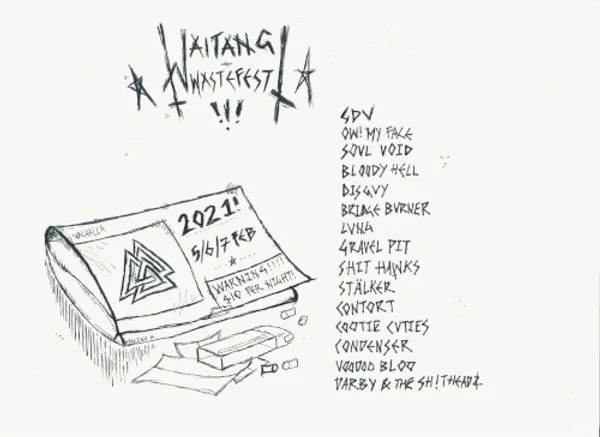 WAITANGI
WASTEFEST
!!!
GDV
OW! MY FACE
SOUL VOID
BLOODY HELL
DISGUY
BRIDGE BURNER
LUNG
GRAVEL PIT
SHIT HAWKS
STÄLKER
CONTORT
COOTIE CUTIES
CONDENSER
VOODOO BLOO
DARBY & THE SH!THEADZ
VALHALLA
2021!
5/6/7 FEB
WARNING!!!!
$10 PER NIGHT!